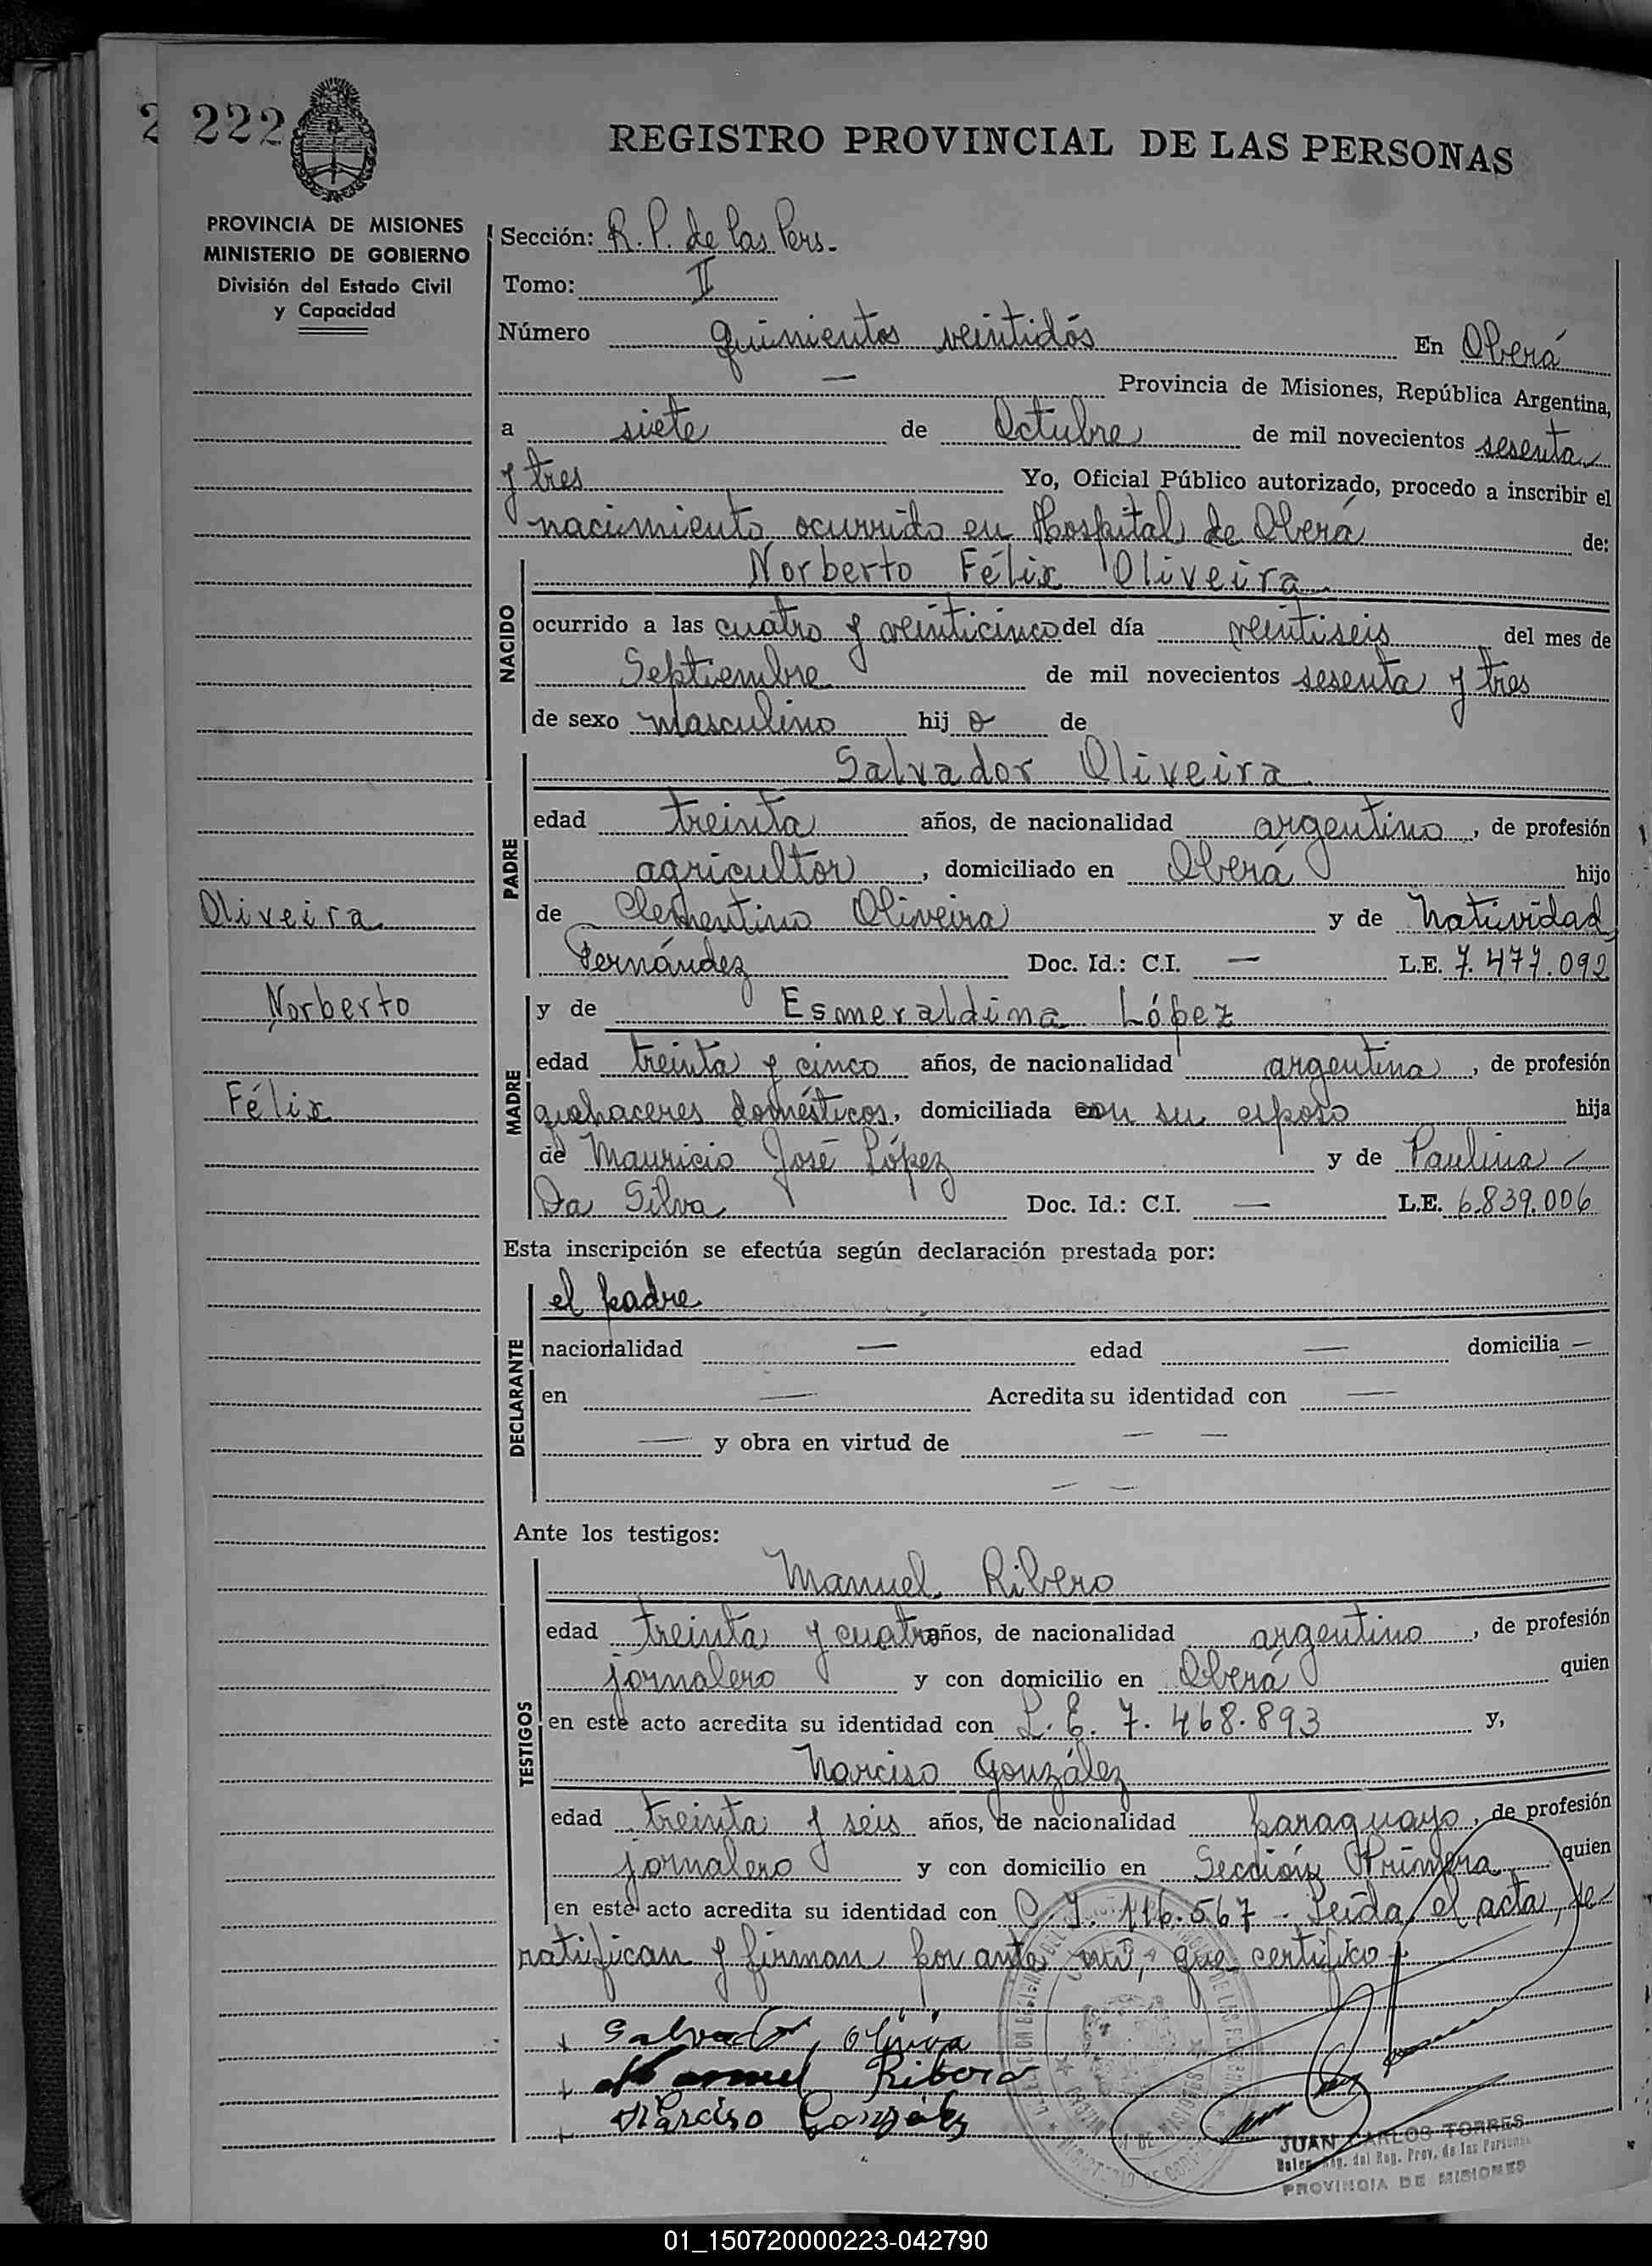 222
REGISTRO PROVINCIAL DE LAS PERSONAS
PROVINCIA DE MISIONES
MINISTERIO DE GOBIERNO
División del Estado Civil
y Capacidad
Sección: R. P. de las Pers.
Tomo: II
Número quinientos veintidós En Oberá
— Provincia de Misiones, República Argentina,
a siete de Octubre de mil novecientos sesenta
y tres Yo, Oficial Público autorizado, procedo a inscribir el
nacimiento ocurrido en Hospital de Oberá de:
NACIDO
Norberto Félix Oliveira
ocurrido a las cuatro y veinticinco del día veintiseis del mes de
Septiembre de mil novecientos sesenta y tres
de sexo masculino hij o de
PADRE
Salvador Oliveira
edad treinta años, de nacionalidad argentino, de profesión
agricultor, domiciliado en Oberá hijo
de Clementino Oliveira y de Natividad
Fernández Doc. Id.: C.I. — L.E. 7.477.092
Oliveira
Norberto
Félix
MADRE
y de Esmeraldina López
edad treinta y cinco años, de nacionalidad argentina, de profesión
quehaceres domésticos, domiciliada con su esposo hija
de Mauricio José López y de Paulina
Da Silva Doc. Id.: C.I. — L.E. 6.839.006
Esta inscripción se efectúa según declaración prestada por:
DECLARANTE
el padre
nacionalidad — edad — domicilia —
en — Acredita su identidad con —
— y obra en virtud de — —
— —
Ante los testigos:
TESTIGOS
Manuel Ribero
edad treinta y cuatro años, de nacionalidad argentino, de profesión
jornalero y con domicilio en Oberá quien
en este acto acredita su identidad con L. E. 7.468.893 y,
Narciso González
edad treinta y seis años, de nacionalidad paraguayo, de profesión
jornalero y con domicilio en Sección Primera quien
en este acto acredita su identidad con C. I. 116.567 - Leída el acta, se
ratifican y firman por ante mí, que certifico.
+ Salvador
+ Manuel Ribero
+ Narciso González
JUAN CARLOS TORRES
del Reg. Prov. de las Personas
PROVINCIA DE MISIONES
01_150720000223-042790